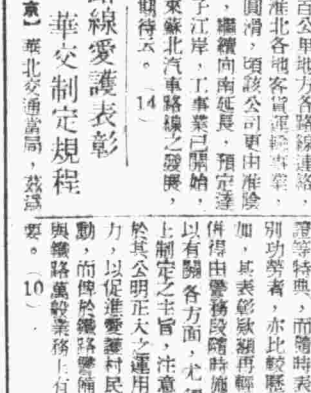 百公里地方各路線連絡，
淮北各地客貨運輸專業，
圓滑，頃該公司更由淮陰
，繼續向南延長，預定達
子江岸，工事業已開始，
來蘇北汽車路線之發展，
期待云。（14）
線愛護表彰
華交制定規程
京】華北交通當局，茲為
證等特典，而隨時表
別功勞者，亦比較
加，其表彰欵額再輕
俾得由警務段隨時施
以有關各方面，尤
上制定之主旨，注意
於其公明正大之運用
力，以促進愛護村民
動，而俾於鐵路警備
與鐵路萬般業務上有
要。（10）